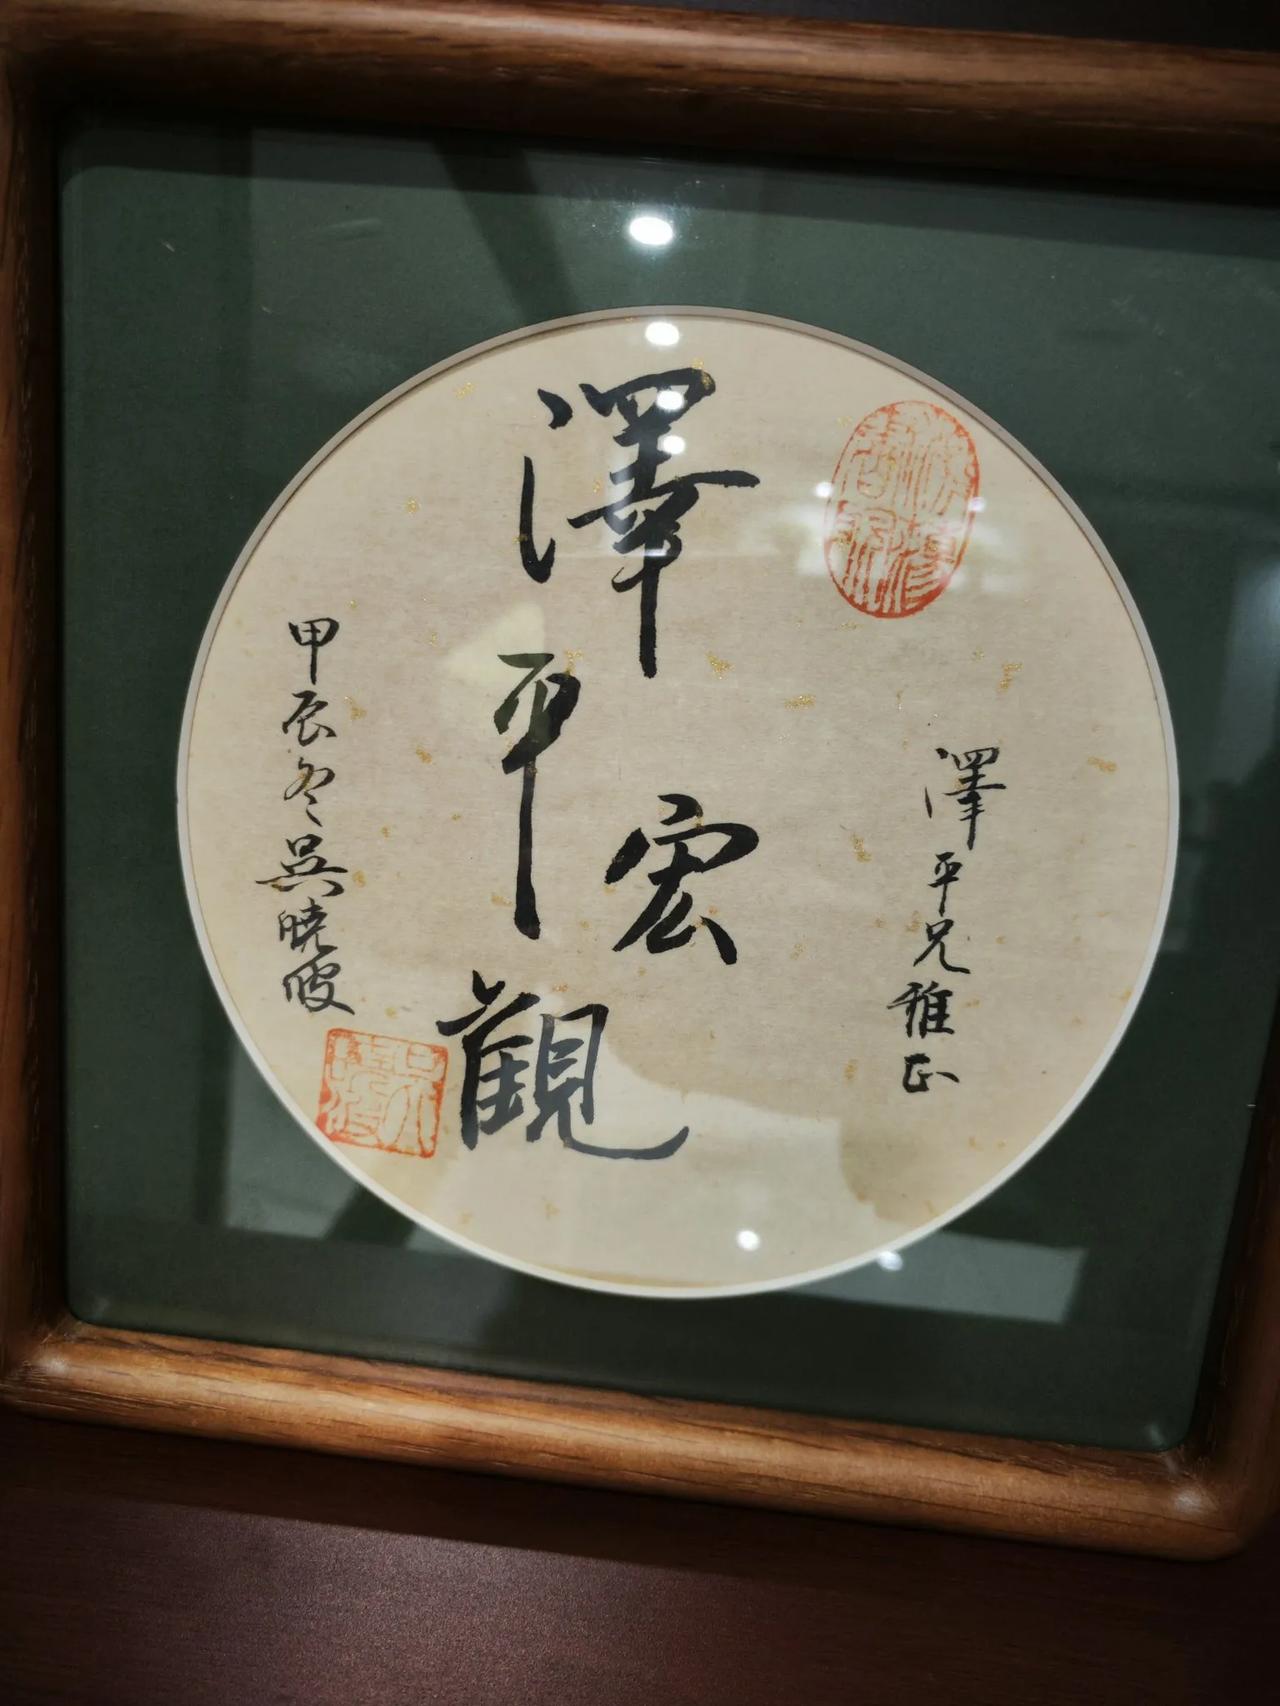 澤平兄雅正
澤平宏觀
甲辰冬吳曉波
吳曉波